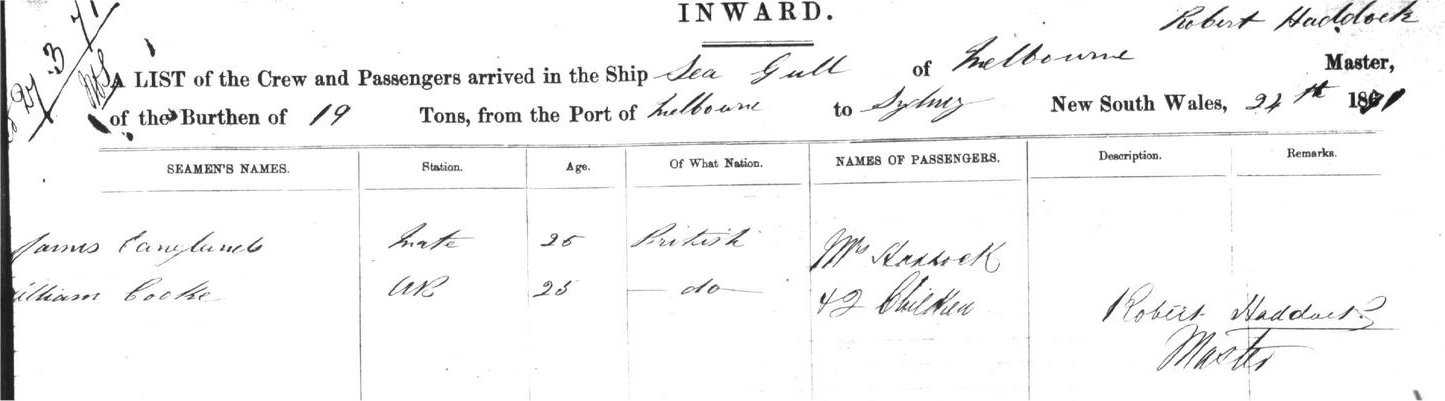 INWARD.
Robert Haddock
27 . 3 71
A LIST of the Crew and Passengers arrived in the Ship Sea Gull of Melbourne Master,
of the Burthen of 19 Tons, from the Port of Melbourne to Sydney New South Wales, 24th 1871
SEAMEN'S NAMES. Station. Age. Of What Nation. NAMES OF PASSENGERS. Description. Remarks.
James Mate 25 British Mrs Haddock
William Cooke AB 25 do + 2 Children
Robert Haddock
Master